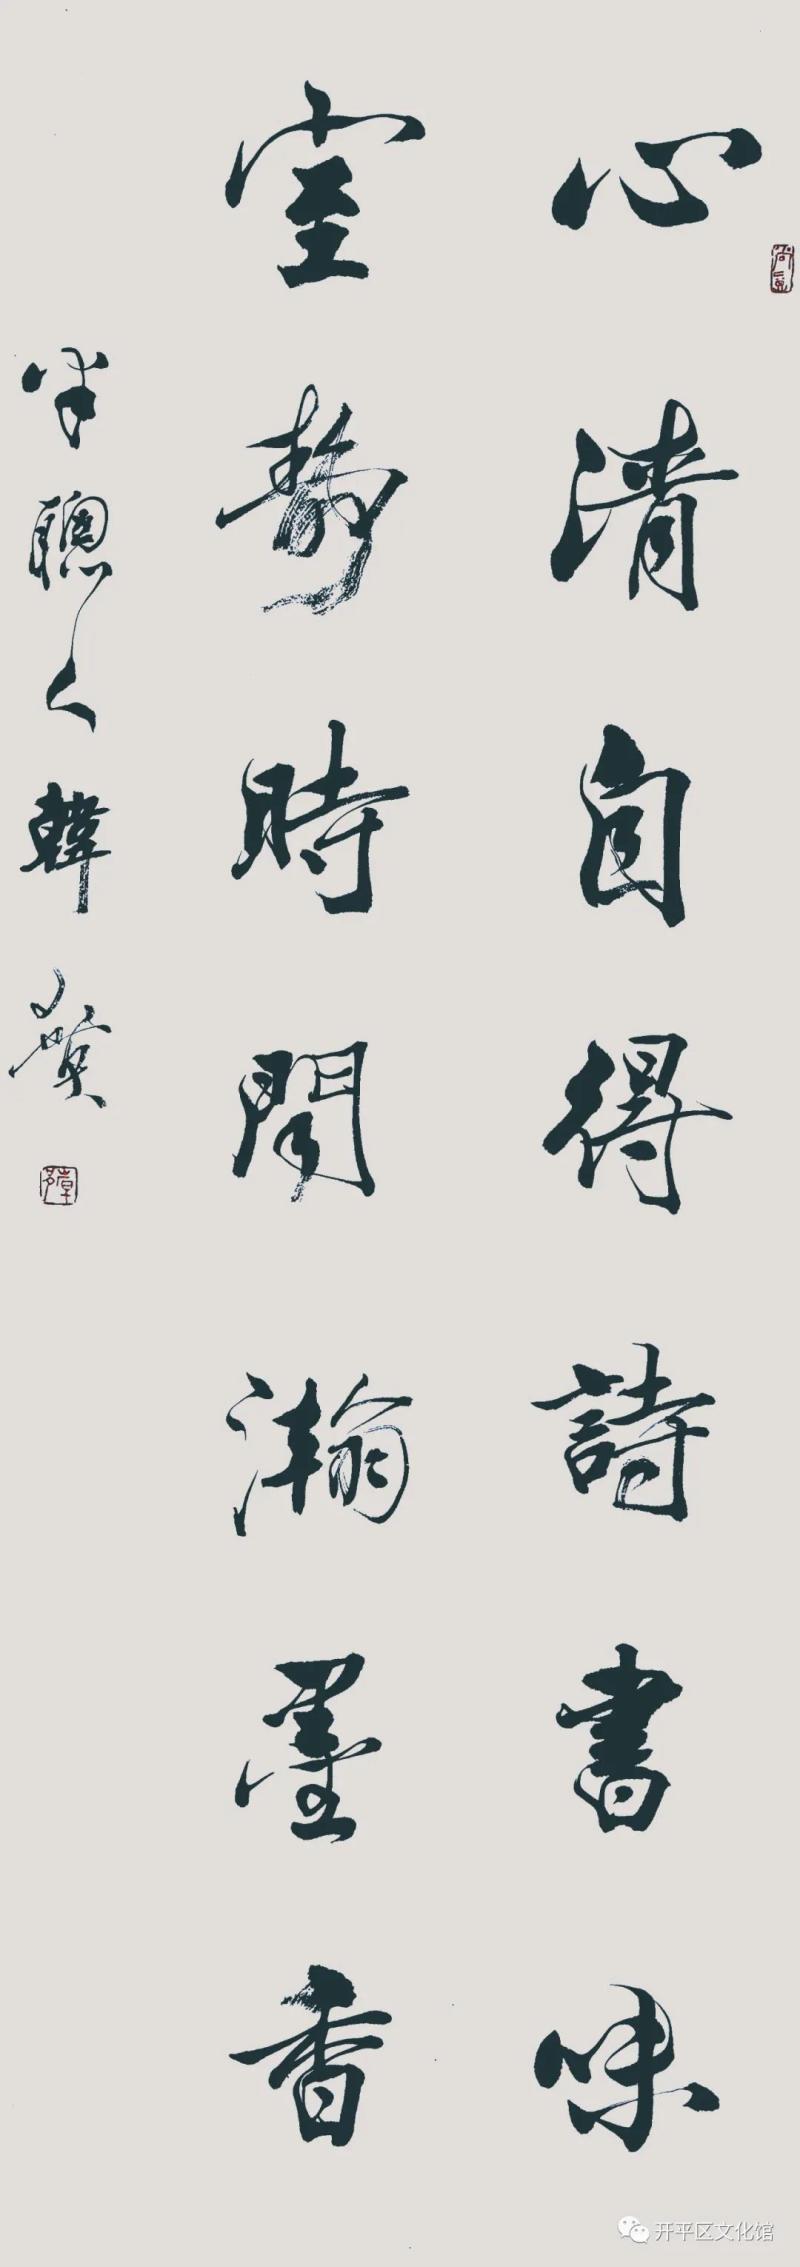 心清自得詩書味
室静時聞瀚墨香
半聰人韓
开平区文化馆